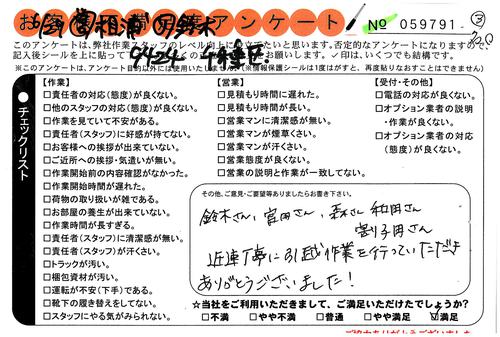 アンケート
№ 059791- ③
このアンケートは、弊社作業スタッフのレベル向上に
立てたいと思います。否定的なアンケートになりますので、
記入後シールを上に貼って
お願いします。✓印は、いくつでも結構です。
※このアンケートは、アンケート目的以外には使用いたしません
(※情報保護シールは1度はがすと、再度貼りなおすことはできません)
チェックリスト
【作業】
□責任者の対応(態度)が良くない。
□他のスタッフの対応(態度)が良くない。
□作業を見ていて不安がある。
□責任者(スタッフ)に好感が持てない。
□お客様への挨拶が出来ていない。
□ご近所への挨拶・気遣いが無い。
□作業開始前の内容確認がなかった。
□作業開始時間が遅れた。
□荷物の取り扱いが雑である。
□お部屋の養生が出来ていない。
□作業時間が長すぎる。
□責任者(スタッフ)に清潔感が無い。
□責任者(スタッフ)が汗くさい。
□トラックが汚い。
□梱包資材が汚い。
□運転が不安(下手)である。
□靴下の履き替えをしてない。
□スタッフにやる気がみられない。
【営業】
□見積もり時間に遅れた。
□見積もり時間が長い。
□営業マンに清潔感が無い。
□営業マンが煙草くさい。
□営業マンが汗くさい。
□営業態度が良くない。
□営業の説明と作業が一致してない。
【受付・その他】
□電話の対応が良くない。
□オプション業者の説明
・作業が良くない。
□オプション業者の対応
(態度)が良くない。
その他、ご意見・ご要望等ありましたらお書き下さい。
鈴木さん、富田さん、森さん 和田さん
割子田さん
近迷丁寧に引越作業を行っていただき
ありがとうございました!
★当社をご利用いただきまして、ご満足いただけたでしょうか?
□不満 □やや不満 □普通 □やや満足 ☑満足